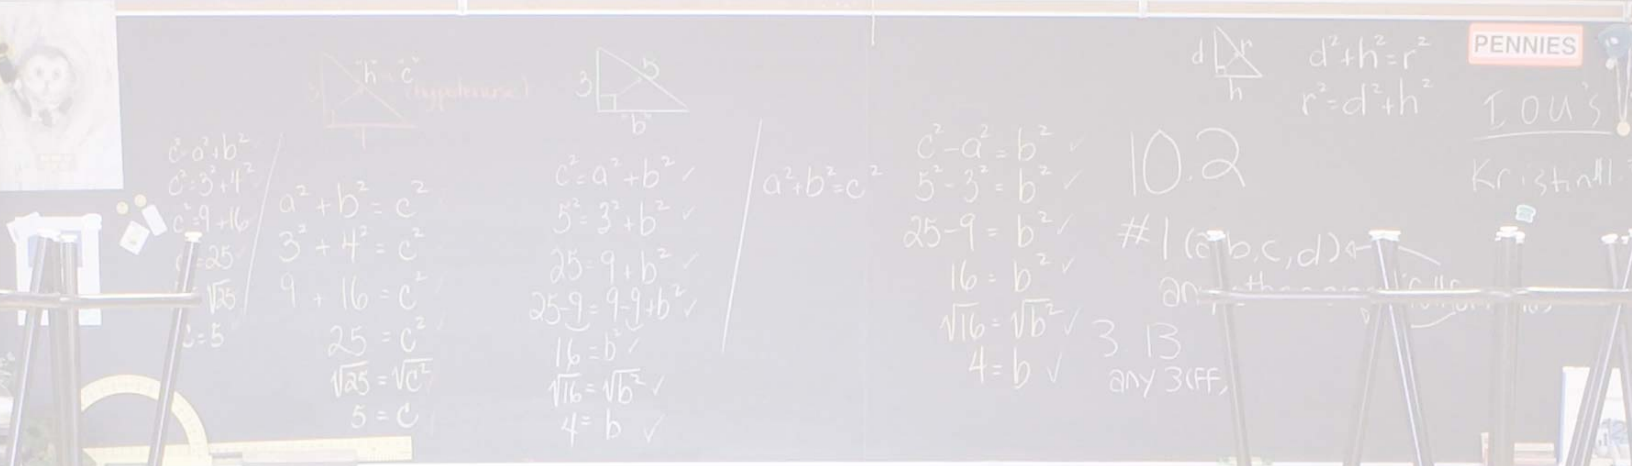 "h" = "c"
(hypotenuse)
c² = a² + b²
c² = 3² + 4²
c² = 9 + 16
c² = 25
√25
c = 5
a² + b² = c²
3² + 4² = c²
9 + 16 = c²
25 = c²
√25 = √c²
5 = c
3
5
"b"
c² = a² + b² ✓
5² = 3² + b² ✓
25 = 9 + b² ✓
25-9 = 9-9+b² ✓
16 = b² ✓
√16 = √b² ✓
4 = b ✓
a² + b² = c²
c² - a² = b² ✓
5² - 3² = b² ✓
25 - 9 = b² ✓
16 = b² ✓
√16 = √b² ✓
4 = b ✓
d
r
h
d² + h² = r²
r² = d² + h²
10.2
#1 (a,b,c,d)
3 13
any 3
PENNIES
IOU's